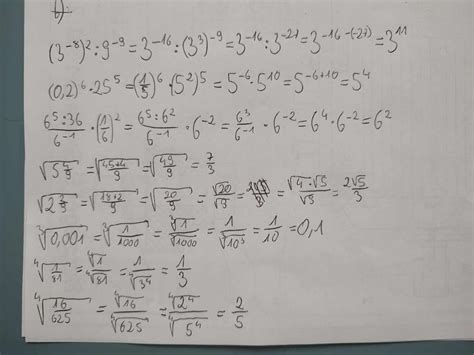 b)
(3⁻⁸)² : 9⁻⁹ = 3⁻¹⁶ : (3³)⁻⁹ = 3⁻¹⁶ : 3⁻²⁷ = 3⁻¹⁶⁻⁽⁻²⁷⁾ = 3¹¹
(0,2)⁶ · 25⁵ = (1/5)⁶ · (5²)⁵ = 5⁻⁶ · 5¹⁰ = 5⁻⁶⁺¹⁰ = 5⁴
6⁵:36/6⁻¹ · (1/6)² = 6⁵:6²/6⁻¹ · 6⁻² = 6³/6⁻¹ · 6⁻² = 6⁴ · 6⁻² = 6²
√(5 4/9) = √(45+4/9) = √(49/9) = 7/3
√(2 2/9) = √(18+2/9) = √(20/9) = √20/√9 = = √(4·√5)/√9 = 2√5/3
∛(0,001) = ∛(1/1000) = ∛1/∛1000 = 1/∛(10³) = 1/10 = 0,1
∜(1/81) = ∜1/∜81 = 1/∜(3⁴) = 1/3
∜(16/625) = ∜16/∜625 = ∜(2⁴)/∜(5⁴) = 2/5